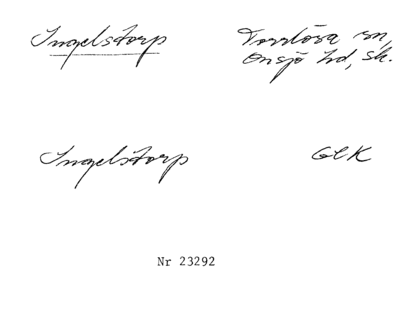 Ingelstorp
Torrlösa sn,
Onsjö hd, Sk.
Ingelstorp
GEK
Nr 23292